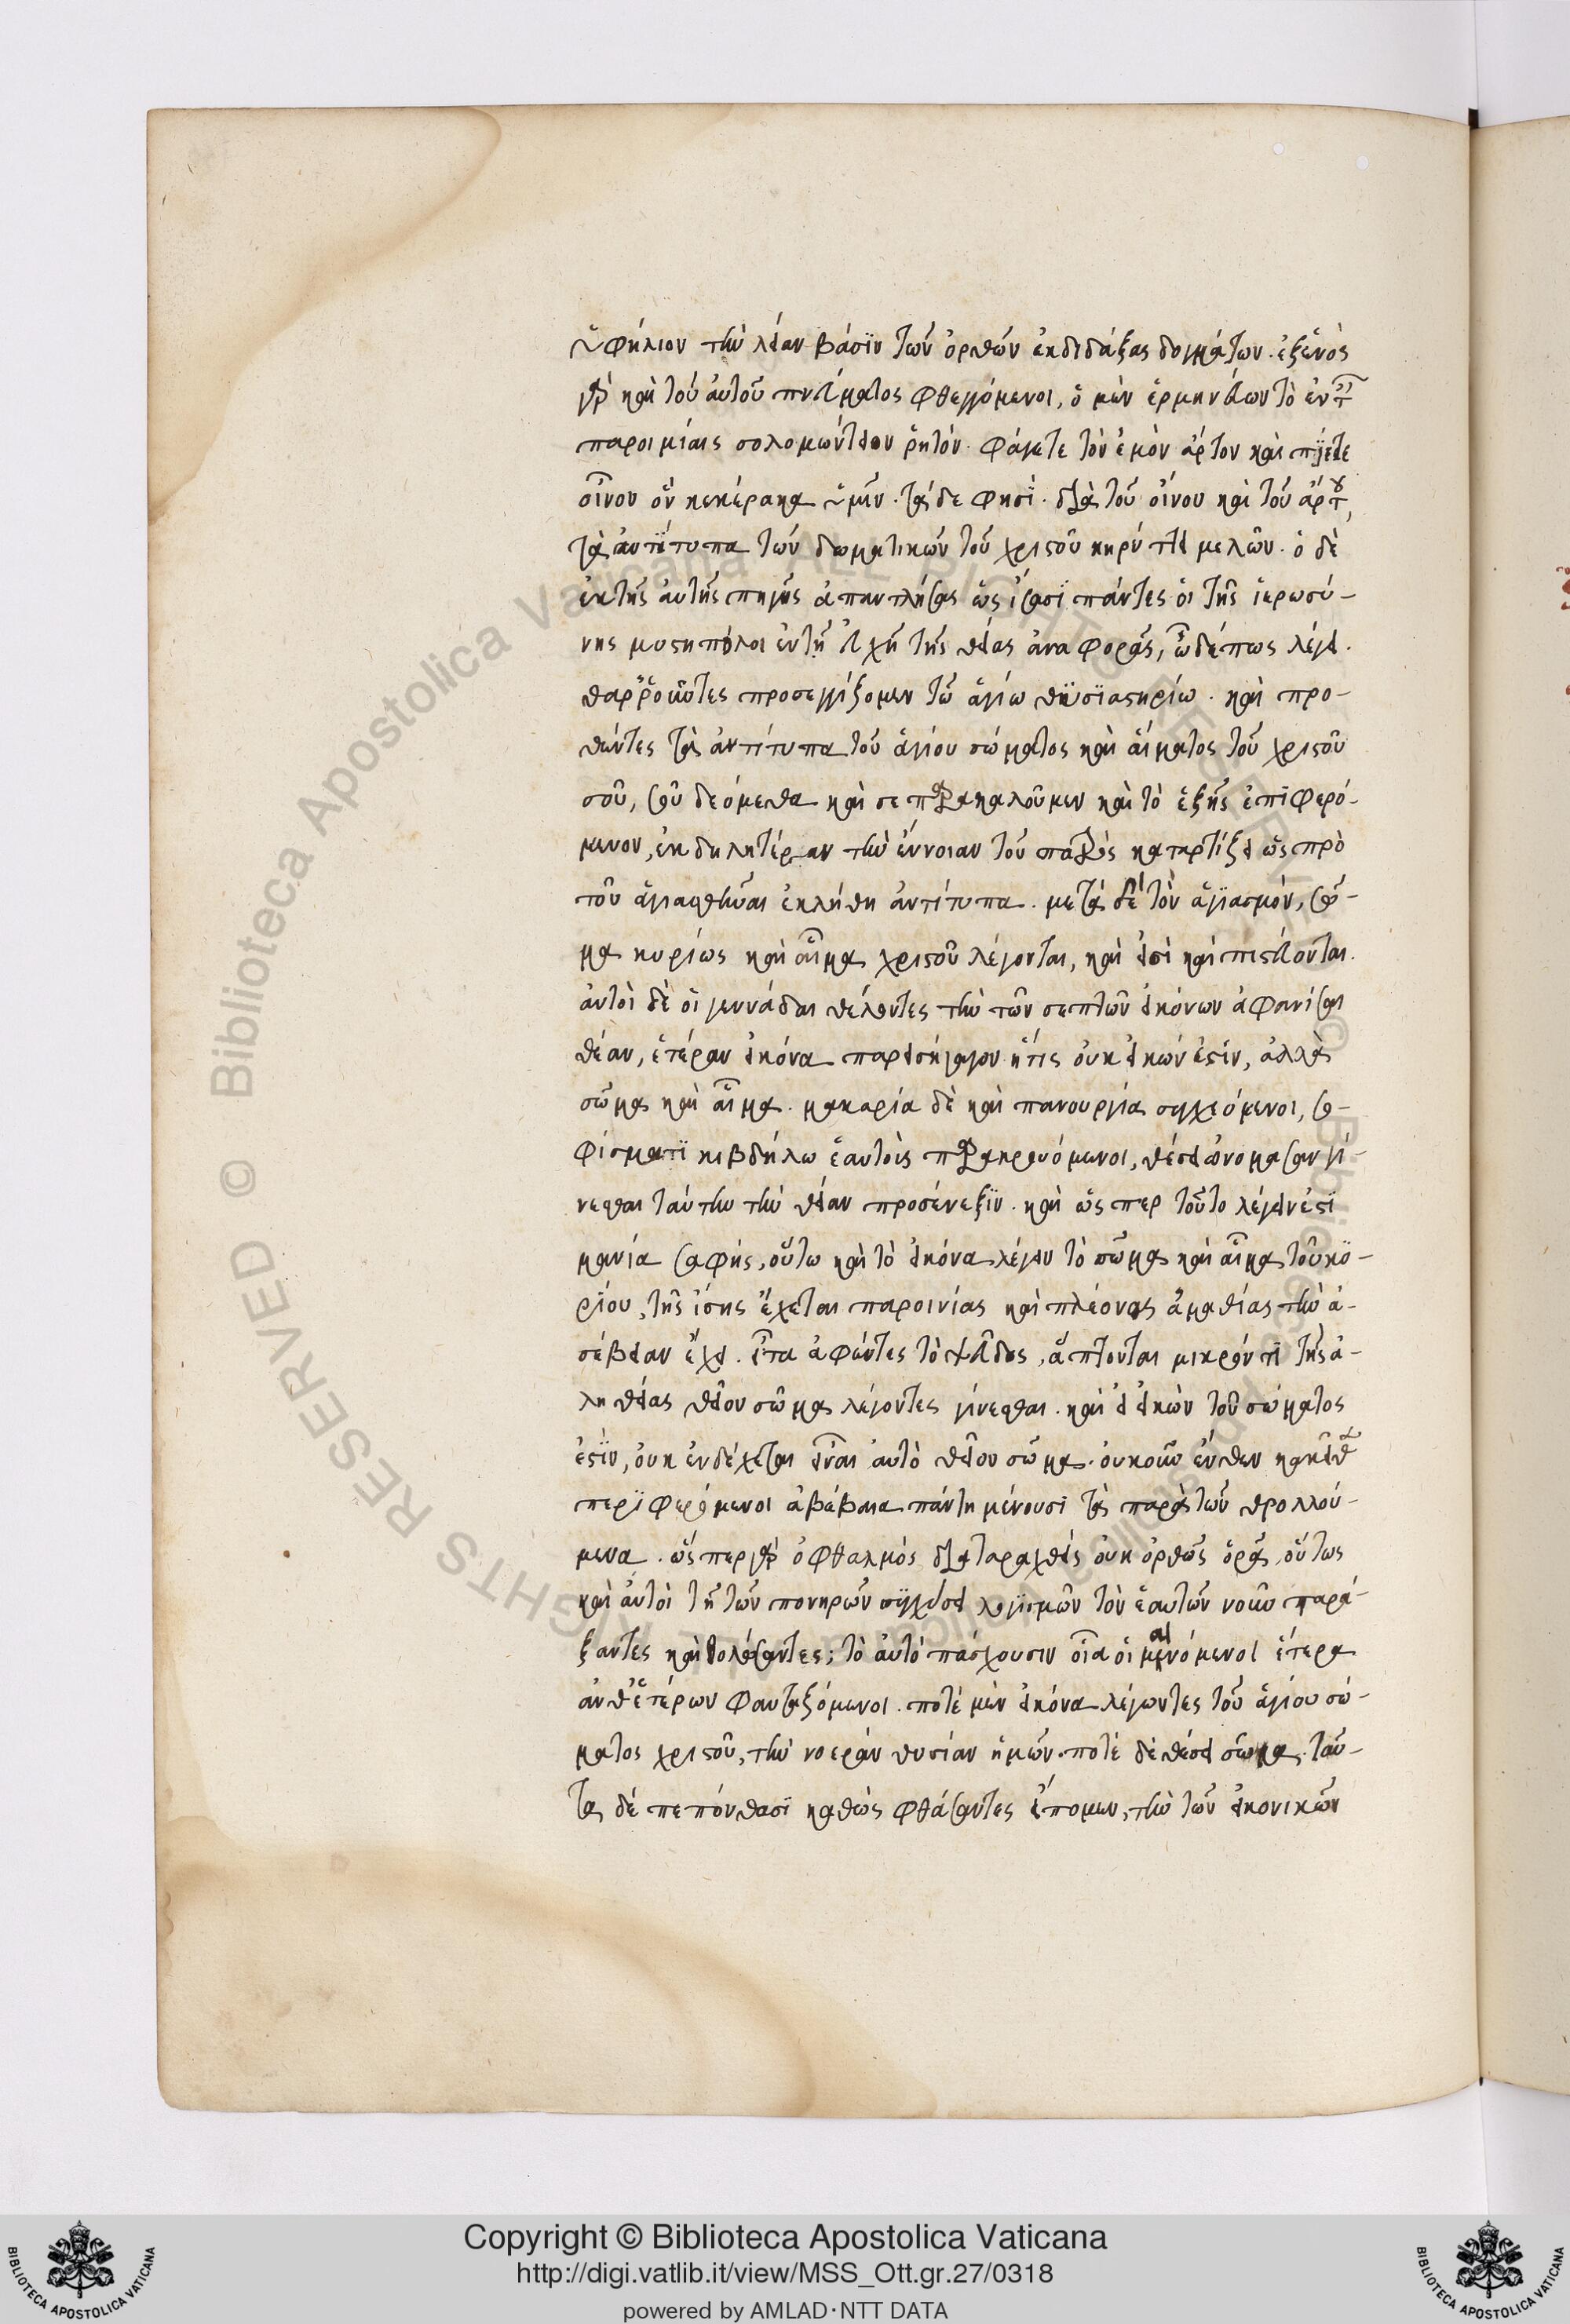 ὑφήλιον τὴν λείαν βάσιν τῶν ὀρθῶν ἐκδιδάξας δογμάτων. ἐξενὸς
γὰρ καὶ τοῦ αὐτοῦ πνεύματος φθεγγόμενοι, ὁ μὲν ἑρμηνεύων τὸ ἐν τ
παροιμίαις σολομώντειον ῥητὸν. φάγετε τὸν ἐμὸν ἄρτον καὶ πίετε
οἶνον ὃν κεκέρακα ὑμῖν. τάδε φησὶ. διὰ τοῦ οἴνου καὶ τοῦ ἄρτου,
τὰ ἀντίτυπα τῶν δωματικῶν τοῦ χριστοῦ κηρύττει μελῶν. ὁ δὲ
ἐκ τῆς αὐτῆς πηγῆς ἀπαντλήσας ὡς ἴσασι πάντες οἱ τῆς ἱερωσύ-
νης μυστηπόλοι ἐν τῇ εὐχῇ τῆς θείας ἀναφορᾶς, ὧδέ πως λέγει.
θαῤῥοῦντες προσεγγίζομεν τῷ ἁγίω θυσιαστηρίω. καὶ προ-
θέντες τὰ ἀντίτυπα τοῦ ἁγίου σώματος καὶ αἵματος τοῦ χριστοῦ
σοῦ, σοῦ δεόμεθα καὶ σε παρακαλοῦμεν καὶ τὸ ἑξῆς ἐπιφερό-
μενον, ἐκδηλητέραν τὴν ἔννοιαν τοῦ πατρὸς καταρτίζει ὡς πρὸ
τοῦ ἁγιασθῆναι ἐκλήθη ἀντίτυπα. μετὰ δὲ τὸν ἁγιασμὸν, σῶ-
μα κυρίως καὶ αἷμα χριστοῦ λέγονται, καὶ εἰσὶ καὶ πιστεύονται.
αὐτοὶ δὲ οἱ γεννάδαι θέλοντες τὴν τῶν σεπτῶν εἰκόνων ἀφανίσαι
θέαν, ἑτέραν εἰκόνα παρεισήγαγον ἥτις οὐκ εἰκών ἐστίν, ἀλλὰ
σῶμα καὶ αἷμα. μακαρία δὲ καὶ πανουργία συγχεόμενοι, σο-
φίσματι κιβδήλω ἑαυτοὺς παρακρουόμενοι, θέσει ὠνόμασαν γί-
νεσθαι ταύτην τὴν θείαν προσένεξιν. καὶ ὥσπερ τοῦτο λέγειν ἐστὶ
μανία σαφής, οὕτω καὶ τὸ εἰκόνα λέγειν τὸ σῶμα καὶ αἷμα τοῦ κυ-
ρίου, τῆς ἴσης ἔχεται παροινίας καὶ πλέονος ἀμαθίας τὴν ἀ-
σέβειαν ἔχει. εἶτα ἀφέντες τὸ ψεῦδος, ἅπτονται μικρόν τι τῆς ἀ-
ληθείας θεῖον σῶμα λέγοντες γίνεσθαι. καὶ εἰ εἰκὼν τοῦ σώματος
ἐστίν, οὐκ ἐνδέχεται εἶναι αὐτὸ θεῖον σῶμα. οὐκοῦν ἔνθεν κἀκεῖθεν
περιφερόμενοι ἀβέβαια πάντη μένουσι τὰ παρὰ τῶν θρολλού-
μενα. ὥσπερ γὰρ ὀφθαλμὸς διαταραχθεὶς οὐκ ὀρθῶς ὁρᾷ, οὕτως
καὶ αὐτοὶ τῇ τῶν πονηρῶν συγχύσει λογισμῶν τὸν ἑαυτῶν νοῦν παρά-
ξαντες καὶ θολώσαντες; τὸ αὐτὸ πάσχουσιν οἷα οἱ μαινόμενοι ἕτερα
ἀνθ' ἑτέρων φανταζόμενοι. ποτὲ μὲν εἰκόνα λέγωντες τοῦ ἁγίου σώ-
ματος χριστοῦ, τὴν νοερὰν θυσίαν ἡμῶν. ποτὲ δὲ θέσει σῶμα. ταῦ-
τα δὲ πεπόνθασι καθὼς φθάσαντες εἴπομεν, τὴν τῶν εἰκονικῶν
Copyright © Biblioteca Apostolica Vaticana
http://digi.vatlib.it/view/MSS_Ott.gr.27/0318
powered by AMLAD·NTT DATA